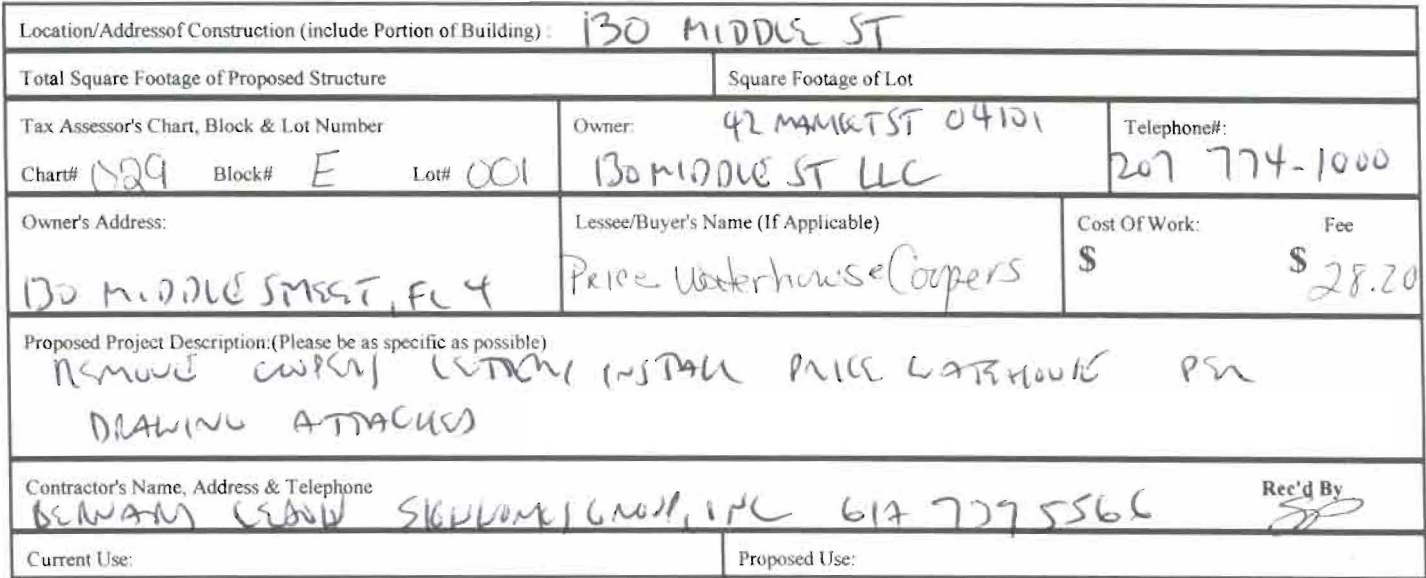 Location/Addressof Construction (include Portion of Building) : 130 MIDDLE ST
Total Square Footage of Proposed Structure
Square Footage of Lot
Tax Assessor's Chart, Block & Lot Number
Chart# 029 Block# E Lot# 001
Owner: 42 MARKET ST 04101
130 MIDDLE ST LLC
Telephone#:
207 774-1000
Owner's Address:
130 MIDDLE STREET, FL 4
Lessee/Buyer's Name (If Applicable)
Price WaterhouseCoopers
Cost Of Work:
$
Fee
$ 28.20
Proposed Project Description:(Please be as specific as possible)
REMOVE COOPERS LETTERS INSTALL PRICE WATEHOUSE PER
DRAWING ATTACHED
Contractor's Name, Address & Telephone
GROUP, INC 617 737 5566
Rec'd By
Current Use:
Proposed Use: